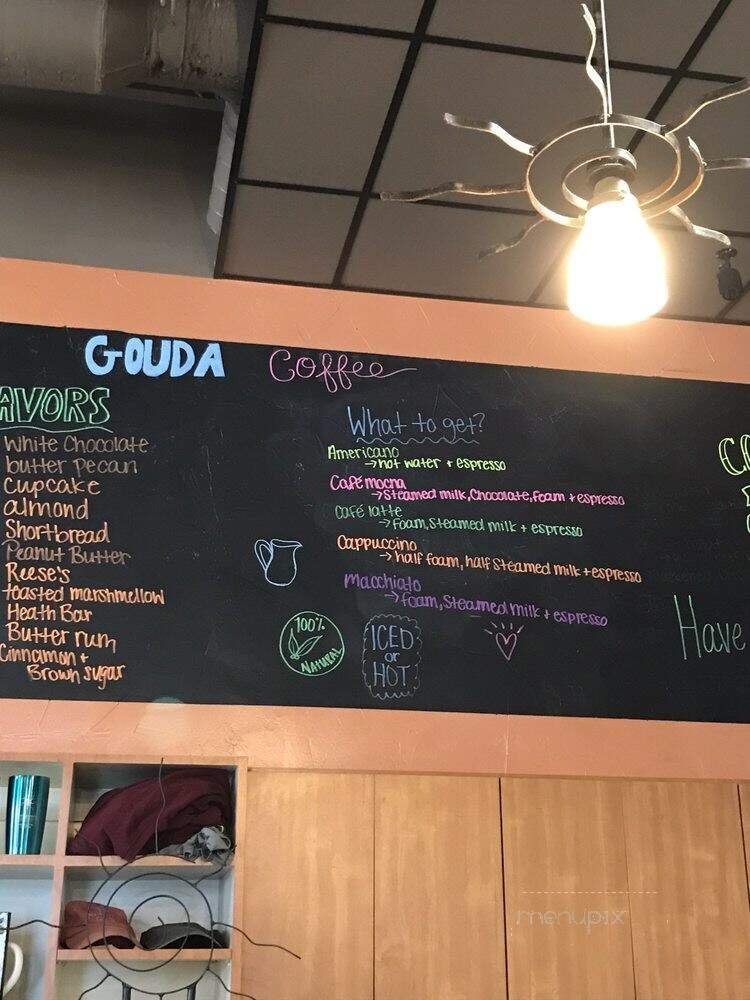 GOUDA Coffee
AVORS
White Chocolate
butter pecan
Cupcake
almond
Shortbread
Peanut Butter
Reese's
toasted marshmallow
Heath Bar
Butter rum
Cinnamon +
Brown sugar
What to get?
Americano
→hot water + espresso
Café mocha
→Steamed milk, Chocolate, Foam + espresso
Café latte
→Foam, Steamed milk + espresso
Cappuccino
→half foam, half Steamed milk + espresso
Macchiato
→foam, Steamed milk + espresso
100%
NATURAL
ICED
or
HOT
Have
menupix